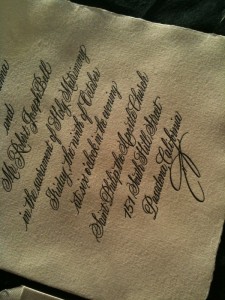 and
Mr. Robert Joseph Bell
in the sacrament of Holy Matrimony
Friday, the ninth of October
at six o'clock in the evening
Saint Philip the Apostle Church
151 South Hill Street
Pasadena, California